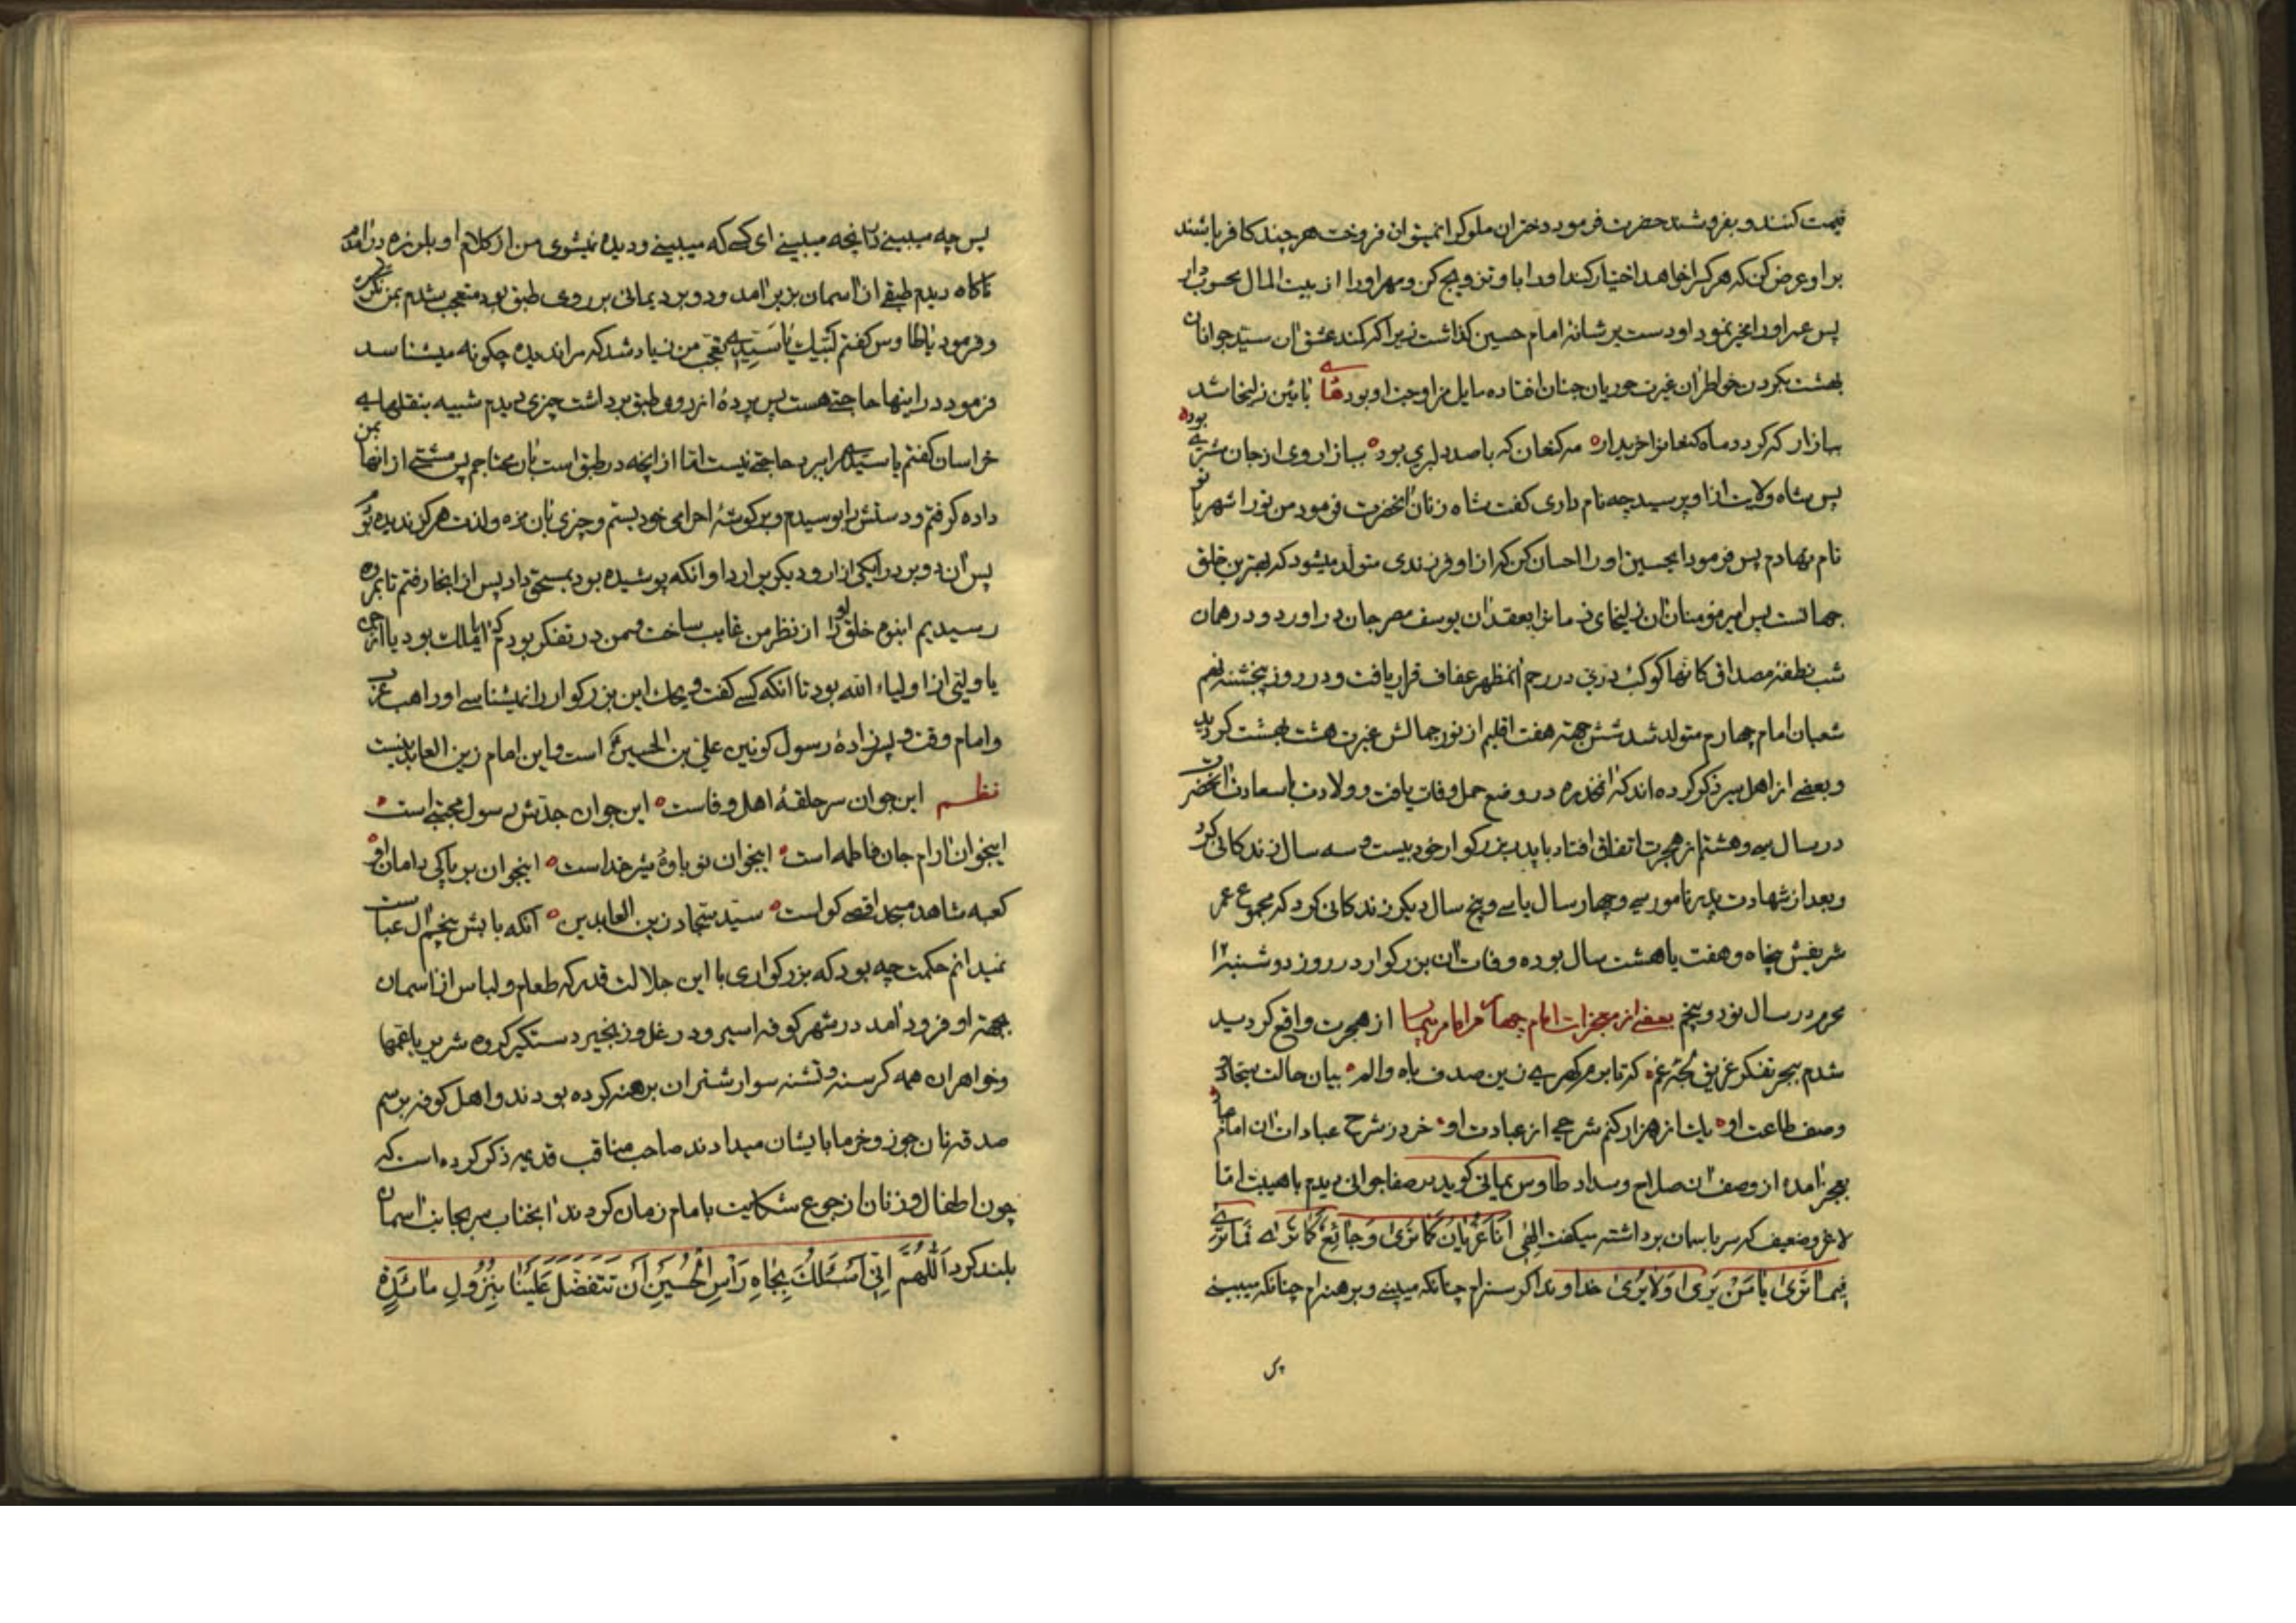 قیمت کنند و بفروشند حضرت فرمود دختران ملوک را نمیتوان فروخت هر چند کافر باشند
بر او عرض کن که هر کرا خواهد اختیار کند او را با او تزویج کن و مهر او را از بیت المال محسوب دار
پس عمر او را مخیر نمود او دست بر شانهٔ امام حسین گذاشت زیرا که کمند عشق ان سید جوانان
بهشت بکردن خواطر ان غیرت حوریان جنان افتاده مایل مزاوجت او بود بائین زلیخا شد
ببازار که کردد ماه کنعانرا خریدار مه کنعان که با صد دلبری بود ببازار وی از جان مشتری بود
پس شاه ولایت از او پرسید چه نام داری کفت شاه زنان انحضرت فرمود من تو را شهر بانو
نام نهادم پس فرمود ایحسین او را احسان کن که از او فرزندی متولد میشود که بهترین خلق
جهانست پس امیر مؤمنان ان زلیخای زمانرا بعقد ان یوسف مصر جان در اورد و در همان
شب نطفهٔ مصداق کانها کوکب دری در رحم انمظهر عفاف قرار یافت و در روز پنجشنبه نهم
شعبان امام چهارم متولد شد شش جهته هفت اقلیم از نور جمالش غیرت هشت بهشت کردید
و بعضی از اهل سیر ذکر کرده اند که انمخدره در وضع حمل وفات یافت و ولادت با سعادت انحضرت
در سال سی و هشتم از هجرت اتفاق افتاد با پدر بزرکوار خود بیست و سه سال زندکانی کرد
و بعد از شهادت پدر نامور سی و چهار سال یا سی و پنج سال دیکر زندکانی کرد که مجموع عمر
شریفش پنجاه و هفت یا هشت سال بوده وفات ان بزرکوار در روز دوشنبه ۱۲
محرم در سال نود و پنج بعضی از معجزات امام چهارم از هجرت واقع کردید
شدم ببحر تفکر غریق لجه غم که تا برم کهری زین صدف باه و الم بیان حالت سجاد و
وصف طاعت او یک از هزار کنم شرحی از عبادت او خرد ز شرح عبادات ان امام
بعجز امده از وصف ان صلاح و سداد طاوس یمانی کوید در صفا جوانی دیدم با هیبت اما
لاغر و ضعیف که سر باسمان برداشته میکفت الهی انا عریان کما تری و جائع کما تری فما تری
فیما تری یا من یری و لا یری خداوندا کرسنه‌ام چنانکه میبینی و برهنه‌ام چنانکه میبینی
پس
پس چه میبینی در انچه میبینی ای کسی که میبینی و دیده نمیشوی من از کلام او بلرزه در امدم
ناکاه دیدم طبقی از اسمان بزیر امد و دو برد یمانی بر روی طبق بود متعجب شدم بمن نکریست
و فرمود یا طاوس کفتم لبیک یا سیدی تعجب من زیاد شد که مرا ندیده چکونه میشناسد
فرمود در اینها حاجتی هست پس پردهٔ از روی طبق برداشت چیزی دیدم شبیه بنقلهای
خراسان کفتم یا سیدی مرا ببرد حاجتی نیست اما از انچه در طبق است بان محتاجم پس مشتی از انها بمن
داده کرفتم و دستش را بوسیدم و بر کوشهٔ احرام خود بستم و چیزی بان مزه و لذت هرکز ندیده بودم
پس ان دو برد را یکی ازار و دیکری را ردا و انکه پوشیده بود بمستحق داد پس از انجا رفتم تا بمروه
رسیدیم انبوه خلق او را از نظر من غایب ساخت و من در تفکر بودم که ایا ملک بود یا از جن
یا ولیی از اولیاء الله بود تا انکه کسی کفت ویحک این بزرکوار را نمیشناسی او راهب عرب
و امام وقت و پسر زادهٔ رسول کونین علی بن الحسین است و این امام زین العابدینست
نظم این جوان سر حلقهٔ اهل وفاست این جوان جدش رسول مجتبی است
اینجوان ارام جان فاطمه است اینجوان نو باوهٔ شیر خداست اینجوان بر پاکی دامان او
کعبه شاهد مسجد اقصی کواست سید سجاد زین العابدین انکه بابش پنجم ال عباست
نمیدانم حکمت چه بود که بزرکواری با این جلالت قدر که طعام و لباس از اسمان
بجهته او فرود امد در شهر کوفه اسیر و در غل و زنجیر دستکیر کروه شریر با عمها
و خواهران همه کرسنه و تشنه سوار شتران برهنه کرده بودند و اهل کوفه برسم
صدقه نان جوز و خرما بایشان میدادند صاحب مناقب قدیمه ذکر کرده است که
چون اطفال و زنان از جوع شکایت بامام زمان کردند انجناب سر بجانب اسمان
بلند کرد اَللّهُمَّ اِنّی اَسئَلُکَ بِجاهِ رَأسِ الْحُسَینِ اَن تَتَفَضَّلَ عَلَینا بِنُزُولِ مائِدَةٍ